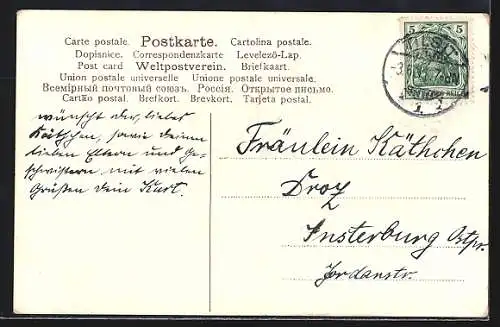 Carte postale. Postkarte. Cartolina postale.
Dopisnice. Correspondenzkarte Levelező-Lap.
Post card Weltpostverein. Briefkaart.
Union postale universelle Unione postale universale.
Всемірный почтовый союзъ. Россія. Открытое письмо.
Cartão postal. Brefkort. Brevkort. Tarjeta postal.
5 5
TILSIT
wünscht dir, liebes
Kätchen, sowie deinen
lieben Eltern und Ge-
schwistern mit vielen
Grüßen dein Kurt.
Fräulein Käthchen
Droz
Insterburg Ostpr.
Jordanstr.